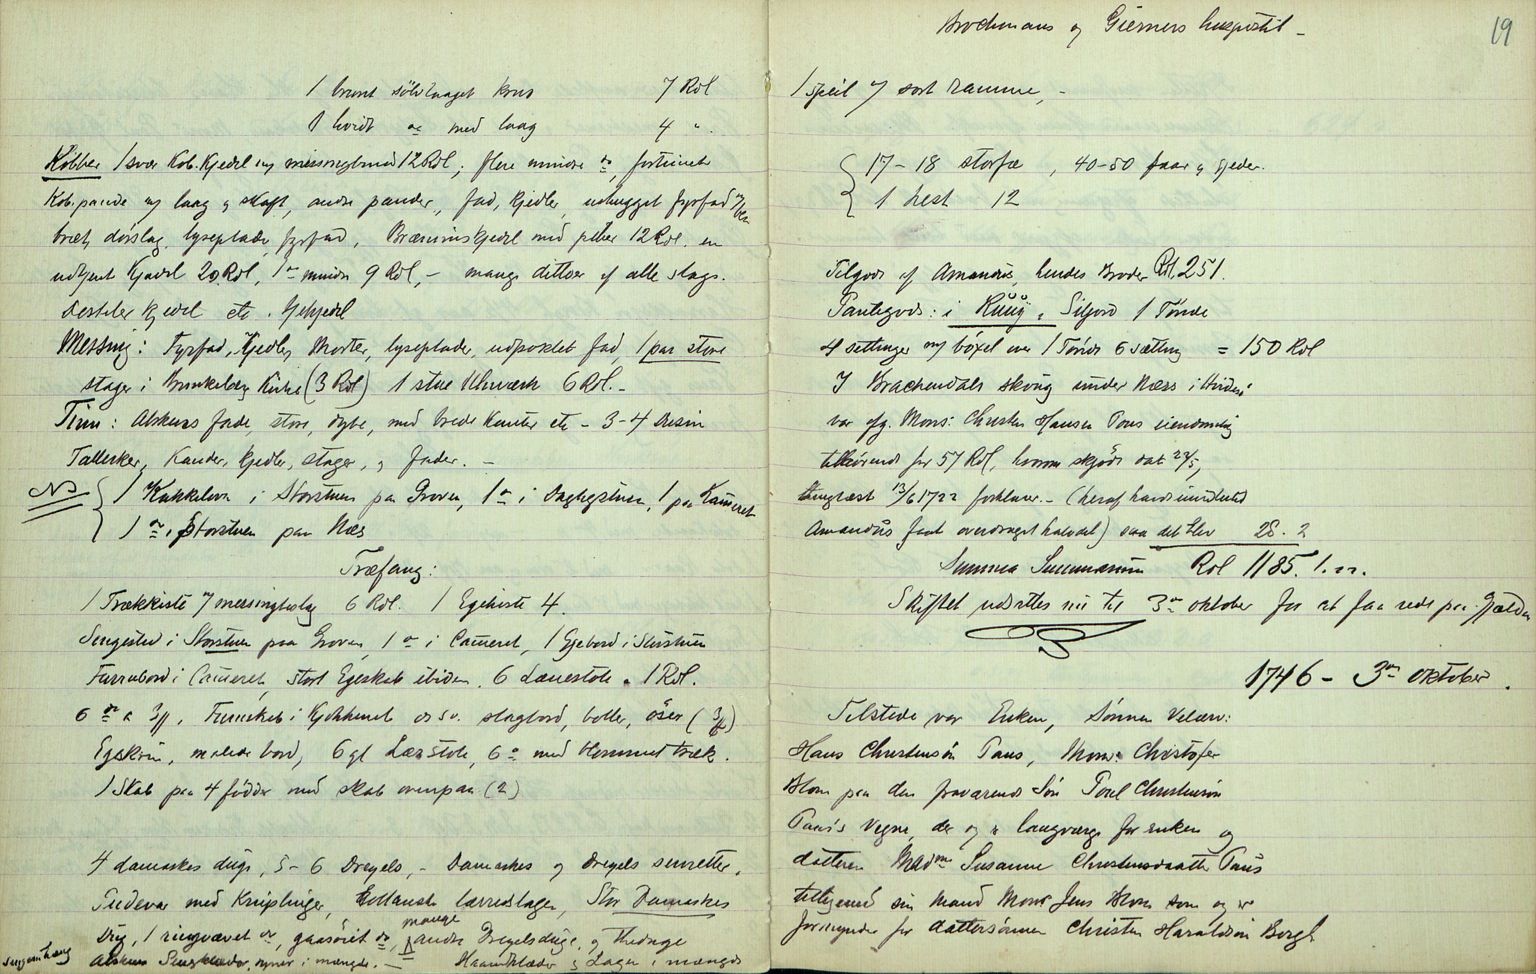 1 brunt sölvlaaget krus 7 Rdl
1 hvidt do med laag 4 ".
Kobber 1 svær Kob. Kjedel m/ messingbund 12 Rdl; flere mindre do, fortinnet
Kob. pande m/ laag & skaft, andre pander, fad, kjedler, udhugget fyrfad
bræt, dörslag, lyseplader, fyrfad, Brændevinskjedel med piber 12 Rdl. en
udtjent Kjedel 20 Rdl, 1 do mindre 9 Rdl, – mange dittoer af alle slags.
Destiler kjedel etc.
Messing: Fyrfad, Kjedler, Morter, lyseplader, udpoklet fad, 1 par store
stager i Brunkeberg Kirke (3 Rdl) 1 stue Uhrværk 6 Rdl. –
Tinn: Alskens fade, store, dybe, med brede Kanter etc – 3-4 Dusin
Tallerker, Kander, kjedler, stager, & fader. –
NB 1 Kakkelovn i Storstuen paa Groven, 1 do i Daglistuen, 1 paa Kameret
1 do i Storstuen paa Næs
Træfang:
1 Trækkiste m/ messingbeslag 6 Rdl. 1 Egekiste 4.
Sengested i Storstuen paa Groven, 1 do i Cameret, 1 Egebord i Storstuen
Furrubord i Cameret, stort Egeskab ibiden, 6 Lænestole a 1 Rdl.
6 do a 3 , Furuskab i Kjøkkenet osv. slagbord, boller, öser (3 )
Egeskrin, malede bord, 6 gl Lærstole, 6 do med blommet træk.
1 Skab paa 4 födder med skab ovenpaa (2)
4 damaskes duge, 5-6 Dreyels, – Damaskes og Dreyels servietter,
Pudevar med Kniplinger, Hollandsk lærredslagen, Stor Damaskes
Dug, 1 ringvævet do, gaasöiet do, mange andre Dreyelsduge, og Theduge
sengeomhæng Alskens Sengklæder, dyner i mængde. – Haandklæder & Lagen i mængde
19
Brochmans og Gierners huspostil –
1 speil m/ sort ramme, –
17-18 storfæ, 40-50 faar & gjeder.
1 hest 12
Tilgode af Amandus, hendes Broder Rdl. 251.
Pantegods: i Rüüy i Siljord 1 Tönde
4 settinger m/ böxel over 1 Tönde 6 sætting = 150 Rdl
I Brachendals skoug under Næss i Hvideseid
var afg. Mons: Christen Hansen Paus eiendomlig
tilhörende for 57 Rdl, hvorom skjöde dat 27/5,
tinglæst 13/6 1722 forklarer. – (heraf havde imidlertid
Amandus faat overdraget halvdel) saa det blev 28. 2
Summa Summarum Rdl 1185. 1. 22.
Skiftet udsættes nu til 3de oktober for at faa rede paa gjælden
1746 – 3de oktober.
Tilstede var Enken, Sönnen Velærv:
Hans Christensön Paus, Mons: Christofer
Blom paa den fraværende Sön Povel Christensön
Paus's Vegne, der og er laugværge for enken og
datteren Madme Susanne Christensdaatter Paus
tilligemed sin mand Mons: Jens Blom som og er
formynder for dattersönnen Christen Haraldsön Bergh